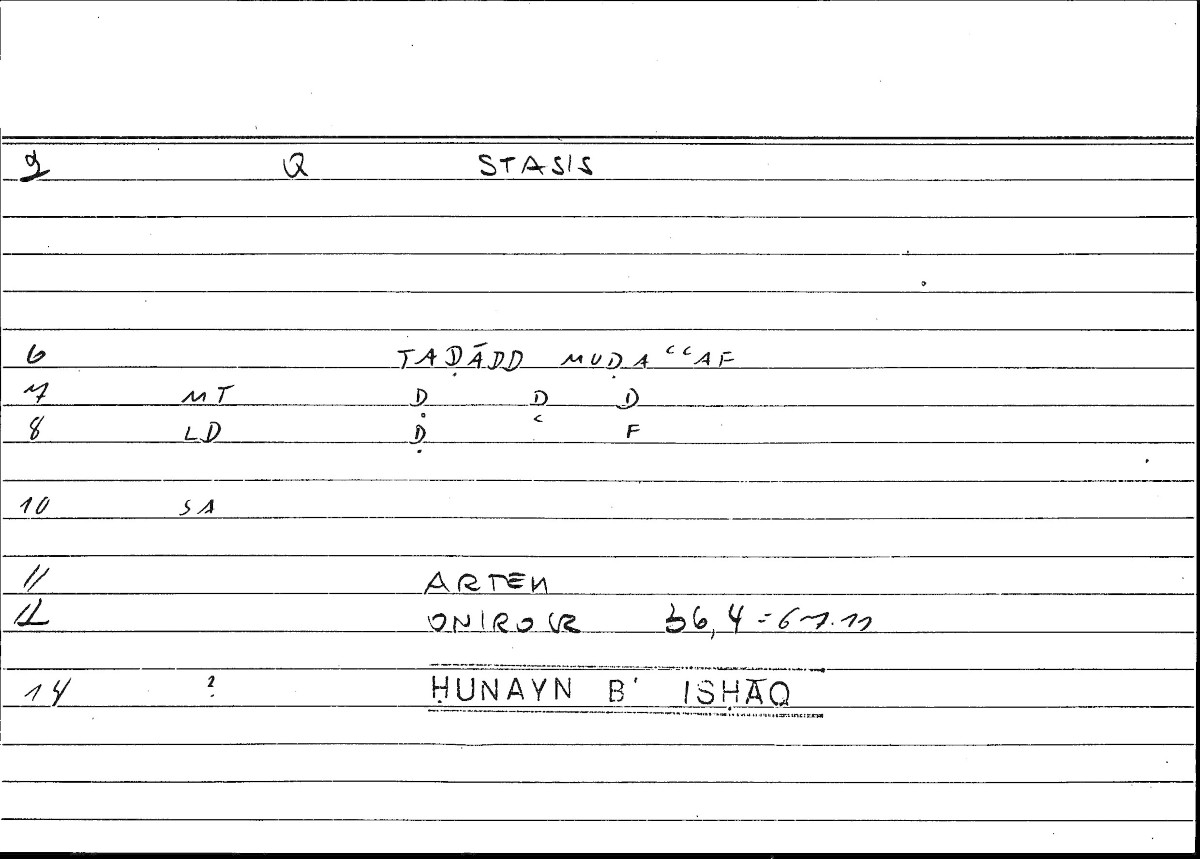 2 Q STASIS
6 TAḌĀDD MUḌAʿʿAF
7 MT D D D
8 LD Ḍ ʿ F
10 SA
11 ARTEM
12 ONIROCR 36,4 = 67.11
14 ? ḤUNAYN B' ISḤĀQ